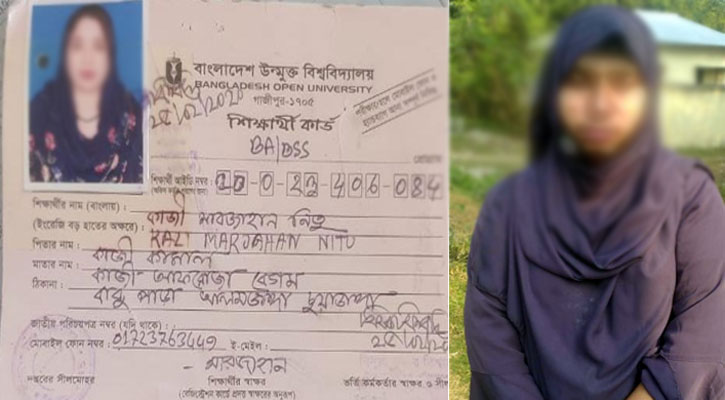 বাংলাদেশ উন্মুক্ত বিশ্ববিদ্যালয়
BANGLADESH OPEN UNIVERSITY
গাজীপুর-১৭০৫
শিক্ষার্থী কার্ড
BA/BSS
শিক্ষার্থী আইডি নম্বর :
0-23-406-084
শিক্ষার্থীর নাম (বাংলায়) : কাজী মারজাহান নিতু
(ইংরেজি বড় হাতের অক্ষরে) : KAZI MARJAHAN NITU
পিতার নাম : কাজী কামাল
মাতার নাম : কাজী আফরোজা বেগম
ঠিকানা : পাড়া আলমডাঙ্গা চুয়াডাঙ্গা
জাতীয় পরিচয়পত্র নম্বর (যদি থাকে) :
মোবাইল ফোন নম্বর : 01723763449 ই-মেইল :
মারজাহান
দপ্তরের সীলমোহর শিক্ষার্থীর স্বাক্ষর ভর্তি কর্মকর্তার স্বাক্ষর ও সীল
(রেজিস্ট্রেশন কার্ডে প্রদত্ত স্বাক্ষরের অনুরূপ)